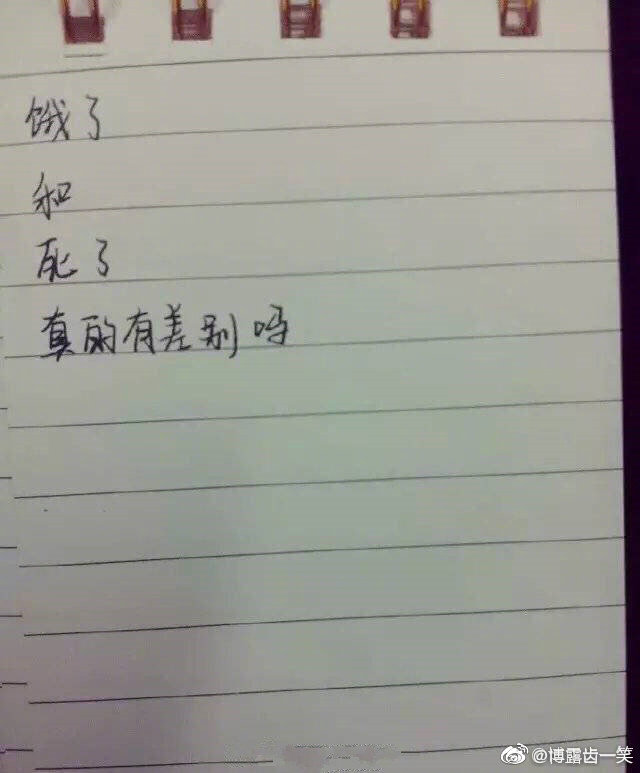 饿了
和
死了
真的有差别吗
@博露齿一笑